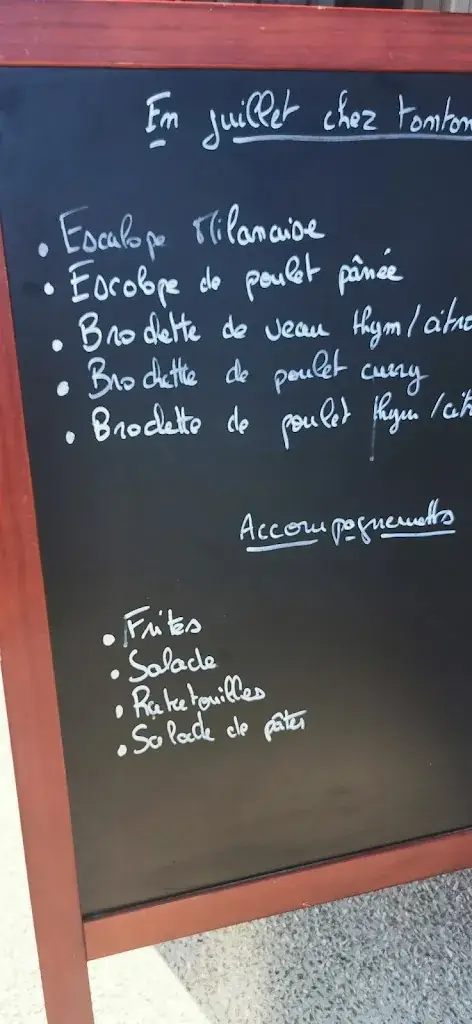 En juillet chez tonton
• Escalope Milanaise
• Escalope de poulet pânée
• Brochette de veau thym/citro
• Brochette de poulet curry
• Brochette de poulet thym/cit
Accompagnements
• Frites
• Salade
• Ratatouilles
• Salade de pâtes